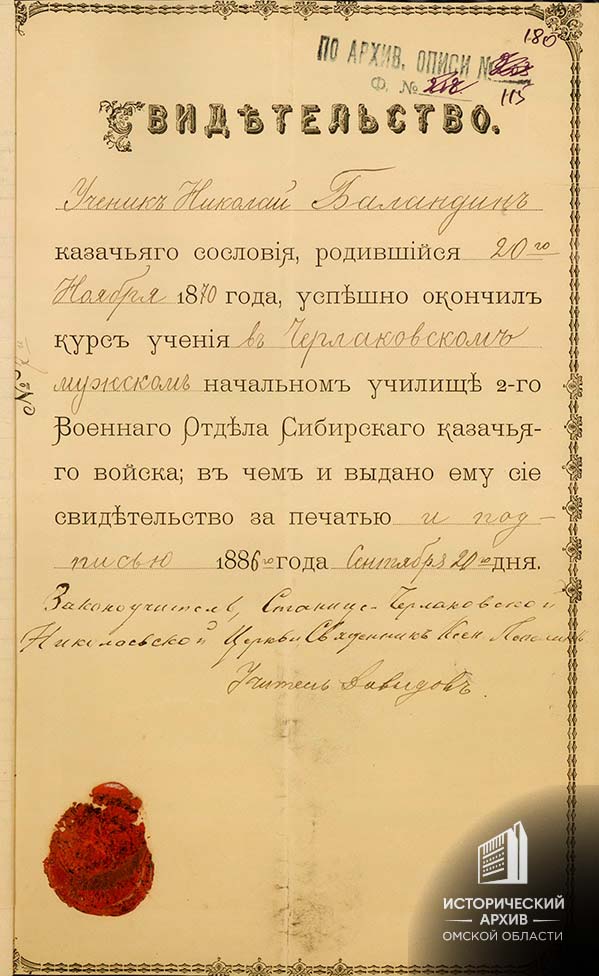 180
ПО АРХИВ. ОПИСИ №
Ф. № 212
115
СВИДѢТЕЛЬСТВО.
Ученикъ Николай Баландинъ
казачьяго сословія, родившійся 20го
Ноября 1870 года, успѣшно окончилъ
курсъ ученія въ Черлаковскомъ
мужскомъ начальномъ училищѣ 2-го
Военнаго Отдѣла Сибирскаго казачья-
го войска; въ чемъ и выдано ему сіе
свидѣтельство за печатью и под-
писью 1886го года Сентября 20го дня.
Законоучитель, Станице-Черлаковской
Николаевской Церкви Священникъ
Учитель Давыдовъ.
№
ИСТОРИЧЕСКИЙ
АРХИВ
ОМСКОЙ ОБЛАСТИ